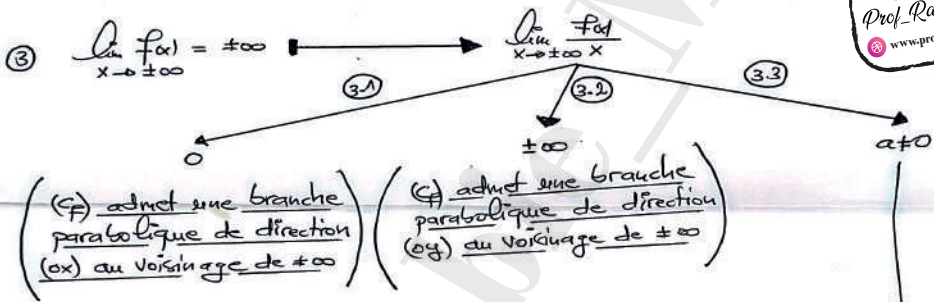 ③ lim f(x) = ±∞ → lim f(x)/x
x→±∞ x→±∞
3.1 3.2 3.3
0 ±∞ a≠0
(Cf) admet une branche
parabolique de direction
(ox) au voisinage de ±∞
(Cf) admet une branche
parabolique de direction
(oy) au voisinage de ±∞